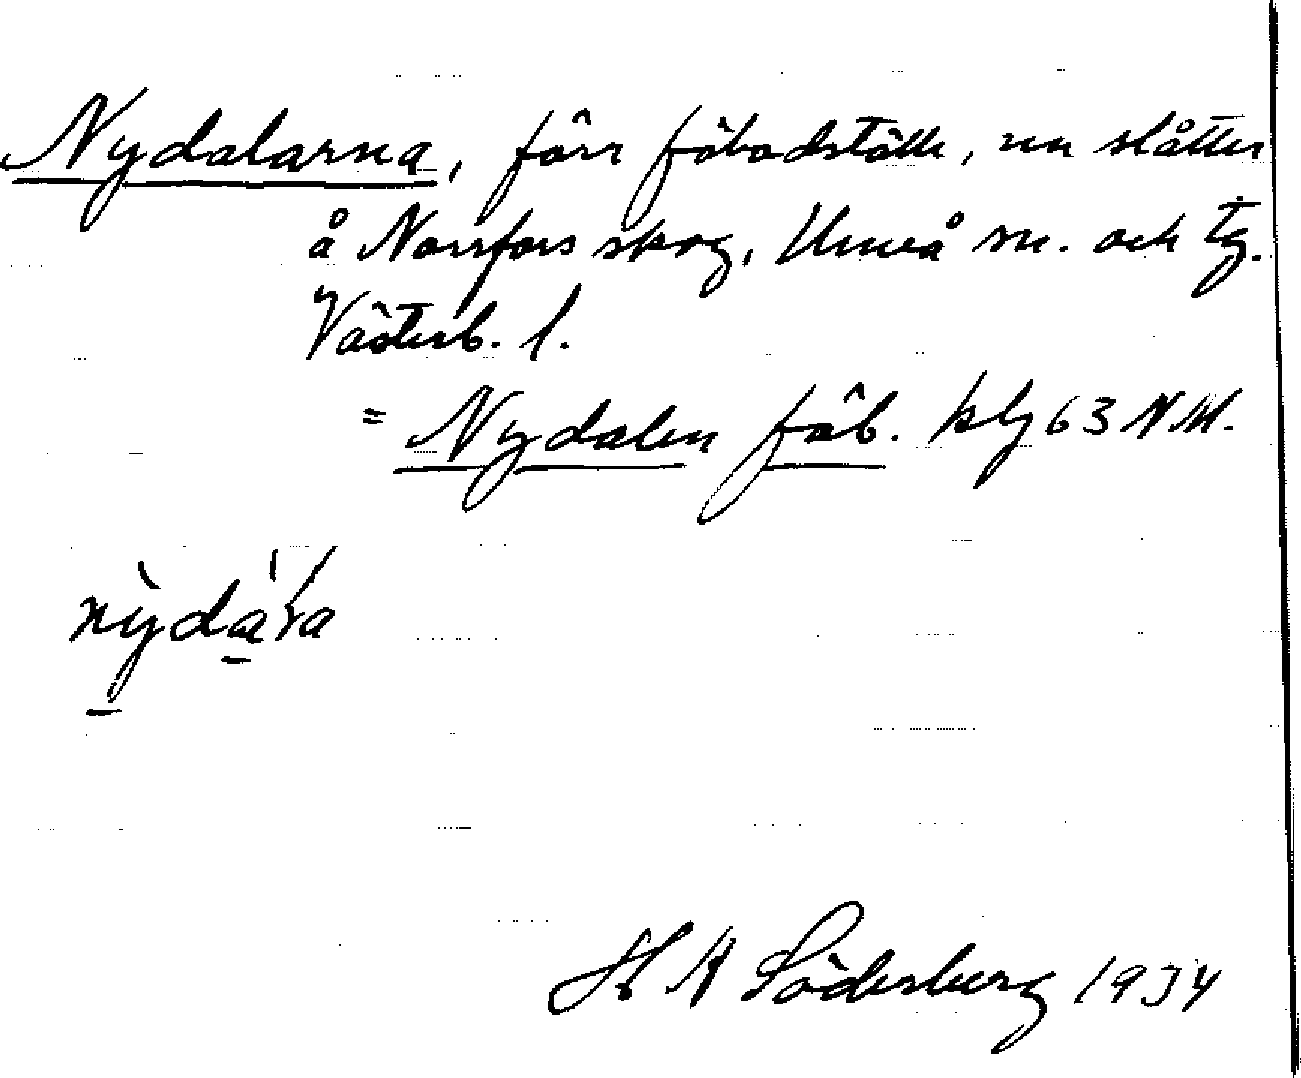 Nydalarna, förr fäbodställe, nu slåtter
å Norrfors skog, Umeå sn. och tg.
Västerb. l.
= Nydalen fäb. kbl 63 NM.
nỳdàʹra
H A Söderberg 1934